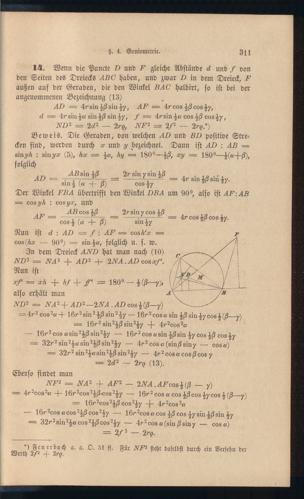 §. 4. Goniometrie. 311
14. Wenn die Puncte D und F gleiche Abstände d und f von
den Seiten des Dreiecks ABC haben, und zwar D in dem Dreieck, F
außen auf der Geraden, die den Winkel BAC halbirt, so ist bei der
angenommenen Bezeichnung (13)
AD = 4r sin ½β sin ½γ, AF = 4r cos ½β cos ½γ,
d = 4r sin ½α sin ½β sin ½γ, f = 4r sin ½α cos ½β cos ½γ,
ND² = 2d² — 2rϱ, NF² = 2f² — 2rϱ.*)
Beweis. Die Geraden, von welchen AD und BD positive Stre-
cken sind, werden durch x und y bezeichnet. Dann ist AD : AB =
sin yh : sin yx (5), hx = ½α, hy = 180°—½β, xy = 180°—½(α+β),
folglich
AD = AB sin ½β / sin ½ (α + β) = 2r sin γ sin ½β / cos ½γ = 4r sin ½β sin ½γ.
Der Winkel FBA übertrifft den Winkel DBA um 90°, also ist AF : AB
= cos yh : cos yx, und
AF = AB cos ½β / cos ½ (α + β) = 2r sin γ cos ½β / sin ½γ = 4r cos ½β cos ½γ.
Nun ist d : AD = f : AF =
cos (hx — 90°) = sin ½α, folglich u. s. w.
In dem Dreieck AND hat man nach (10)
ND² = NA² + AD² + 2NA . AD cos xf'.
Nun ist
= 180° — ½(β—γ),
also erhält man
ND² = NA² + AD² — 2NA . AD cos ½(β—γ)
= 4r² cos² α + 16r² sin² ½β sin² ½γ — 16r² cos α sin ½β sin ½γ cos ½(β—γ)
= 16r² sin² ½β sin² ½γ + 4r² cos² α
— 16r² cos α sin² ½β sin² ½γ — 16r² cos α sin ½β sin ½γ cos ½β cos ½γ
= 32r² sin² ½α sin² ½β sin² ½γ — 4r² cos α (sin β sin γ — cos α)
= 32r² sin² ½α sin² ½β sin² ½γ — 4r² cos α cos β cos γ
= 2d² — 2rϱ (13).
Ebenso findet man
NF² = NA² + AF² — 2NA . AF cos ½(β — γ)
= 4r² cos² α + 16r² cos² ½β cos² ½γ — 16r² cos α cos ½β cos ½γ cos ½(β—γ)
= 16r² cos² ½β cos² ½γ + 4r² cos² α
— 16r² cos α cos² ½β cos² ½γ — 16r² cos α cos ½β cos ½γ sin ½β sin ½γ
= 32r² sin² ½α cos² ½β cos² ½γ — 4r² cos α (sin β sin γ — cos α)
= 2f² — 2rϱ.
*) Feuerbach a. a. O. 51 ff. Für NF² steht daselbst durch ein Versehn der
Werth 2f² + 2rϱ.
F
C
N
D
M
A
B